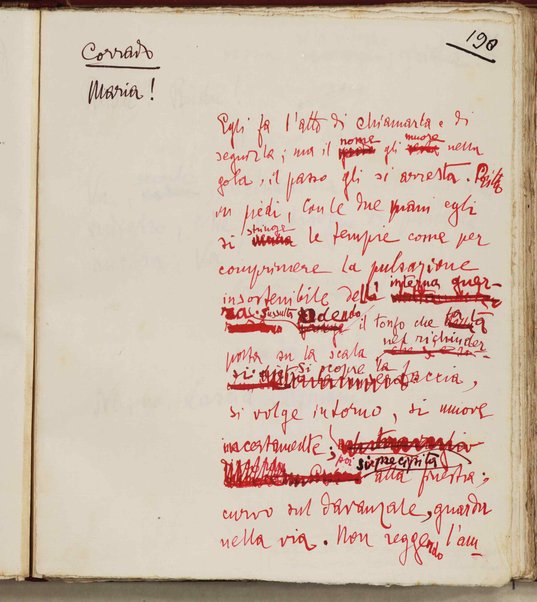 198
Corrado
Maria!
Egli fa l'atto di chiamarla e di
seguirla; ma il nome gli muore nella
gola, il passo gli si arresta. Ritto
in piedi, con le due mani egli
si stringe le tempie come per
comprimere la pulsazione
insostenibile dell' interna guer-
ra. Sussulta udendo il tonfo che fa la
porta su la scala nel richiudersi.
Si scopre la faccia,
si volge intorno, si muove
incertamente;
poi si precipita alla finestra;
curvo sul davanzale, guarda
nella via. Non reggendo l'am